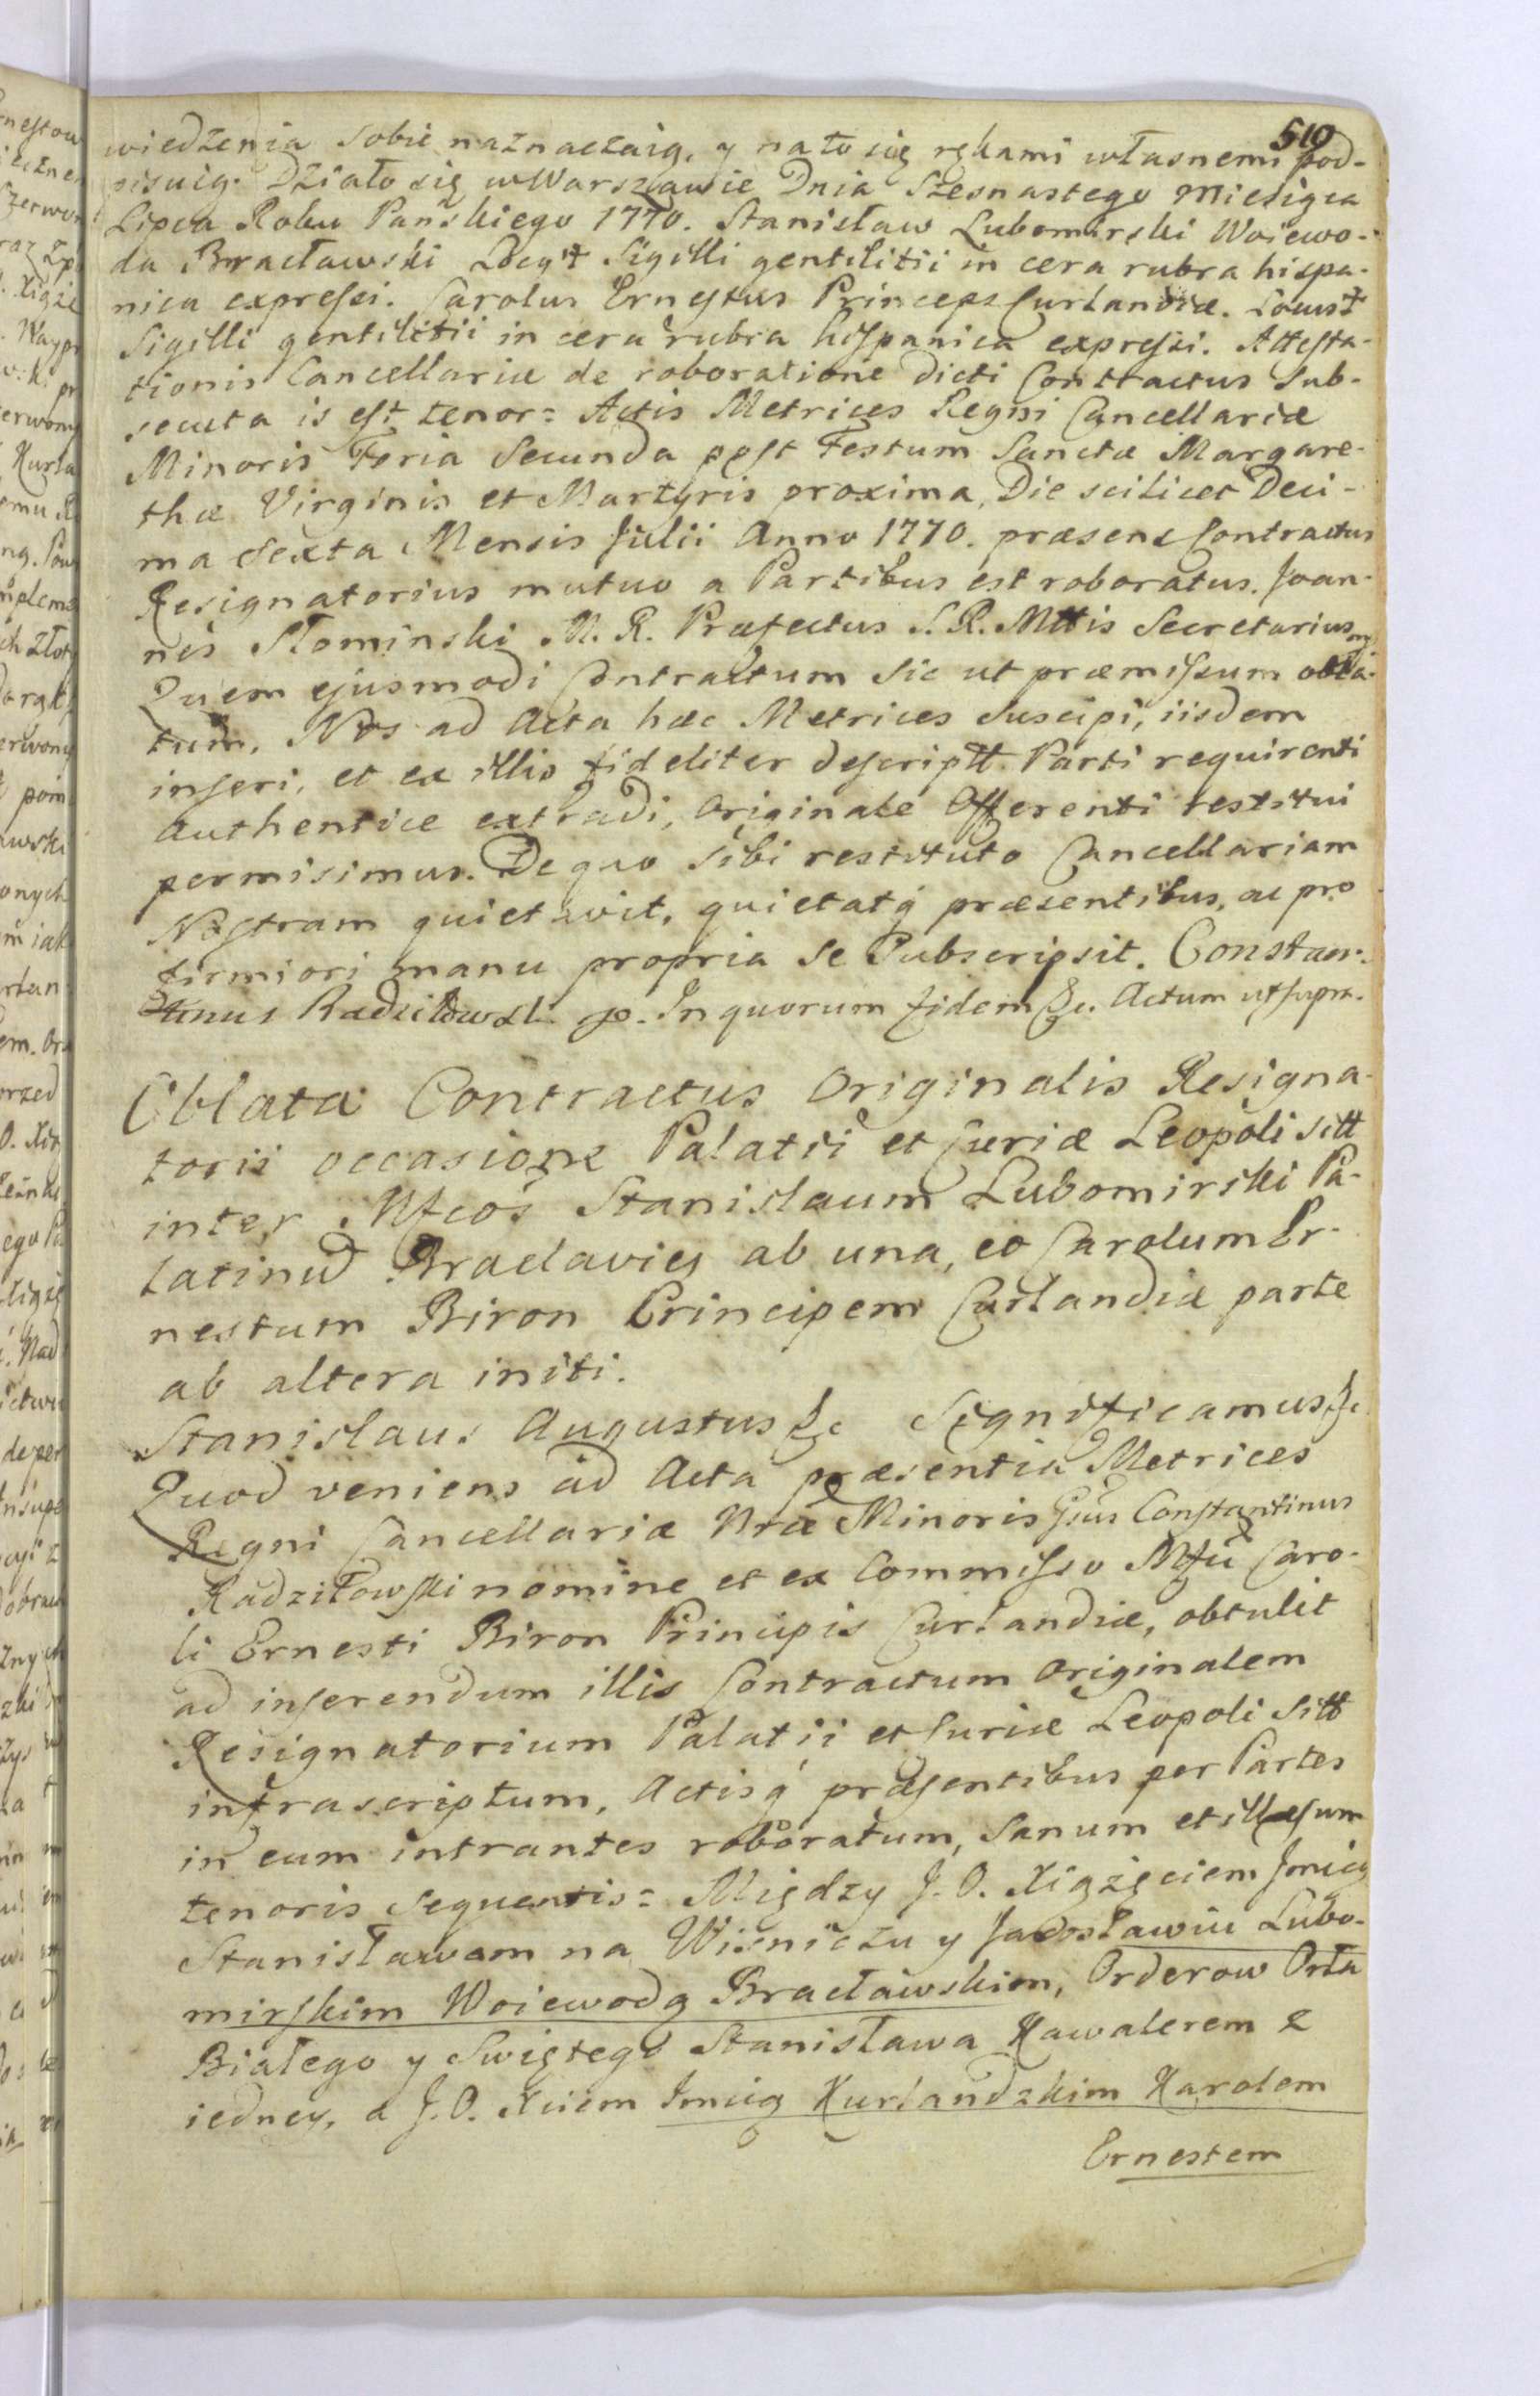 510
wiedzenia sobie naznaczaią, y na to się rękami własnemi pod-
pisuią. Działo się w Warszawie Dnia Szesnastego Miesiąca
Lipca Roku Pańskiego 1770. Stanisław Lubomirski Woiewo-
da Bracławski Locq̃ Sigilli gentilitii in cera rubra hispa-
nica expressi. Carolus Ernestus Princeps Curlandiæ. Locus
Sigilli gentilitii in cera rubra hispanica expressi. Attesta-
tionis Cancellariæ de roboratione dicti Contractus sub-
secuta is est tenor: Actis Metrices Regni Cancellariæ
Minoris Feria Secunda post Festum Sanctæ Margare-
thæ Virginis et Martyris proxima, Die scilicet Deci-
ma Sexta Mensis Julii Anno 1770. præsens Contractus
Resignatorius mutuo a Partibus est roboratus. Joan-
nes Słominski M. R. Præfectus S. R. Mttis Secretarius
Quem ejusmodi Contractum sic ut præmissum obla-
tum, Nos ad Acta hæc Metrices suscipi, iisdem
inseri, et ex illis fideliter descriptt. Parti requirenti
Authentice extradi, Originale Offerenti restitui
permisimus. De quo sibi restituto Cancellariam
Nostram quietavit, quietatq́ præsentibus, ac pro
firmiori manu propria se Subscripsit. Constan-
tinus Radziłowski. In quorum fidem &c. Actum ut supra.
Oblata Contractus Originalis Resigna-
torii occasione Palatii et Curiæ Leopoli sitt
inter Mfcos Stanislaum Lubomirski Pa-
latinũ Braclavieñ ab una, et Carolum Er-
nestum Biron Principem Curlandiæ parte
ab altera initi.
Stanislaus Augustus &c Significamus &c
Quod veniens ad Acta præsentia Metrices
Regni Cancellariæ Nræ Minoris Gsus Constantinus
Radziłowski nomine et ex Commisso Mfci Caro-
li Ernesti Biron Principis Curlandiæ, obtulit
ad inserendum illis Contractum Originalem
Resignatorium Palatii et Curiæ Leopoli Sitt
infrascriptum, Actisq́ præsentibus per Partes
in eum intrantes roboratum, Sanum et illæsum
tenoris sequentis: Między J. O. Xiążęciem Jmcią
Stanisławem na Wiśniczu y Jarosławiu Lubo-
mirskim Woiewodą Bracławskim, Orderow Orła
Białego y Swiętego Stanisława Kawalerem z
iedney, a J. O. Xciem Jmcią Kurlandzkim Karolem
Ernestem